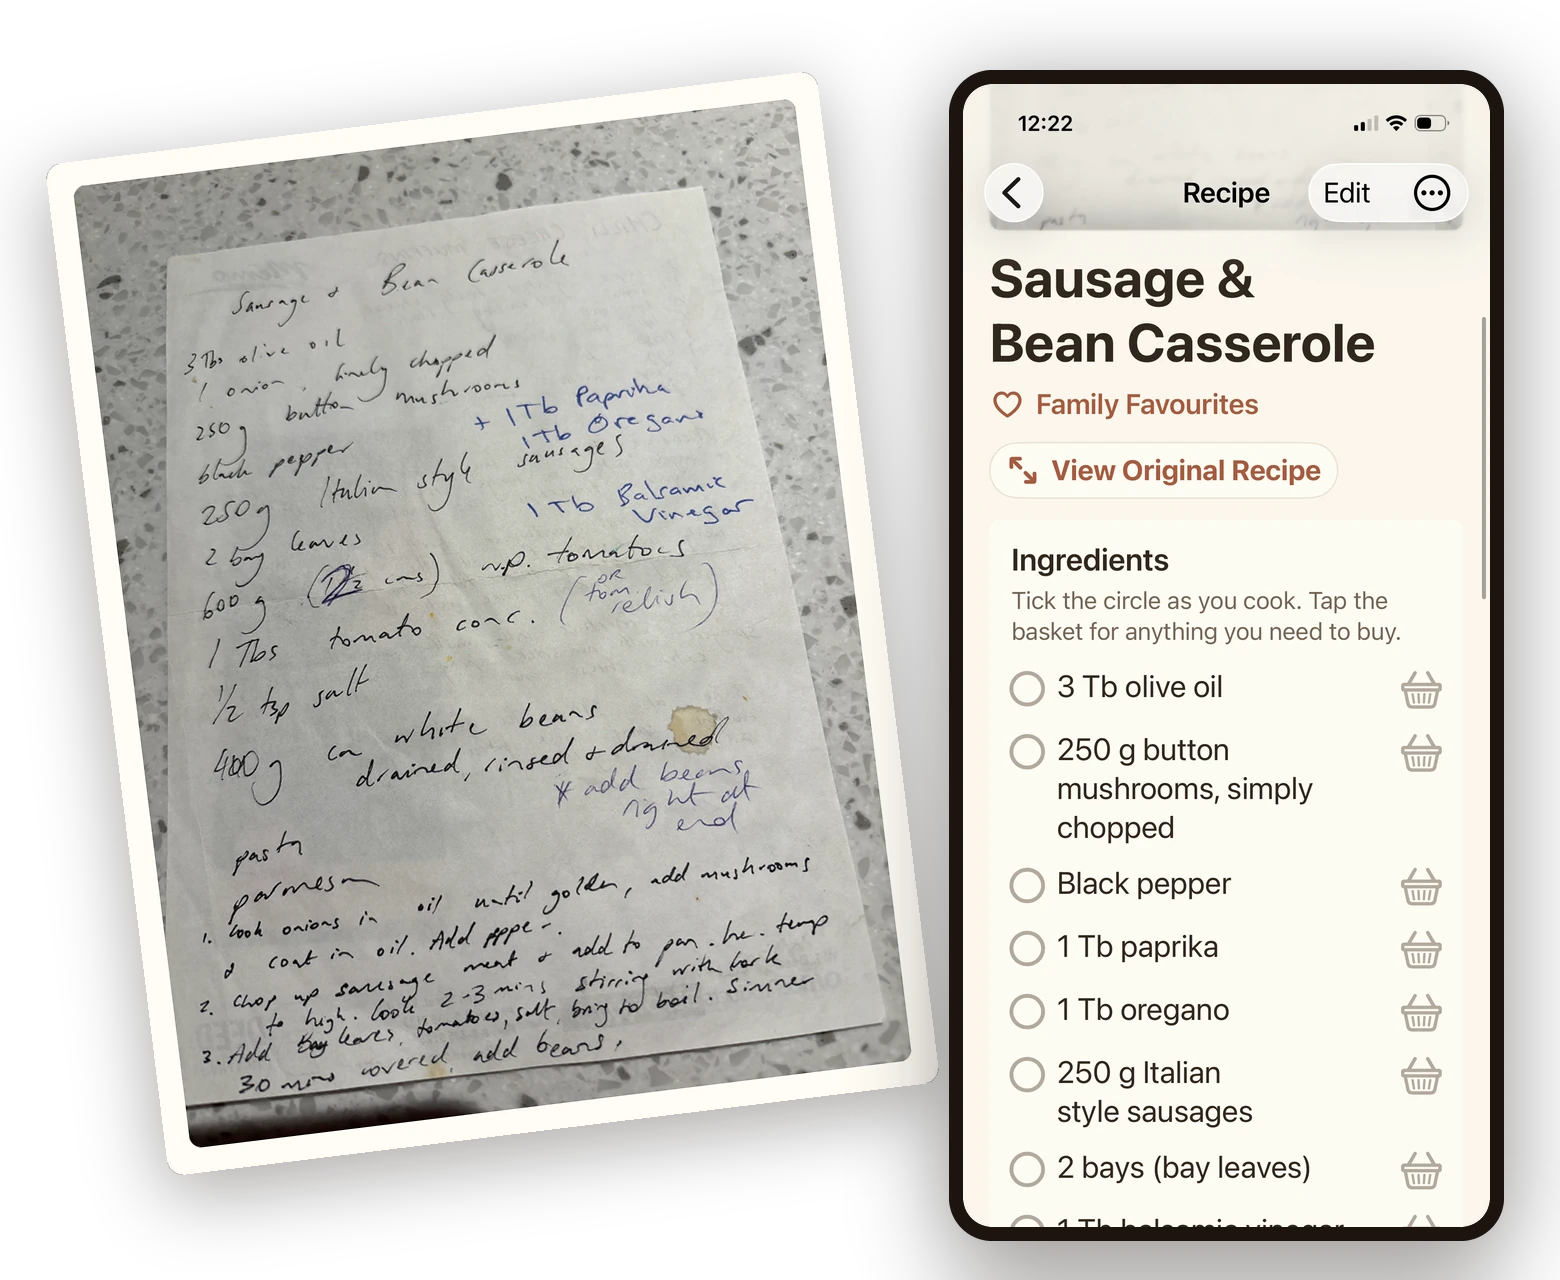 Sausage & Bean Casserole
3 Tbs olive oil
1 onion, finely chopped
250g button mushrooms
+ 1 Tb Paprika
1 Tb Oregano
black pepper
250g Italian style sausages
1 Tb Balsamic
Vinegar
2 bay leaves
600g ( cans) n.p. tomatoes
1 Tbs tomato conc. (OR
tom
relish)
1/2 tsp salt
400g can white beans
drained, rinsed & drained
* add beans
right at
end
pasta
parmesan
1. Cook onions in oil until golden, add mushrooms
& coat in oil. Add pepper.
2. Chop up sausage meat & add to pan. Inc. temp
to high. Cook 2-3 mins stirring with fork
3. Add bay leaves, tomatoes, salt, bring to boil. Simmer
30 mins covered, add beans.
12:22
Recipe
Edit
Sausage &
Bean Casserole
Family Favourites
View Original Recipe
Ingredients
Tick the circle as you cook. Tap the
basket for anything you need to buy.
3 Tb olive oil
250 g button
mushrooms, simply
chopped
Black pepper
1 Tb paprika
1 Tb oregano
250 g Italian
style sausages
2 bays (bay leaves)
1 Tb balsamic vinegar